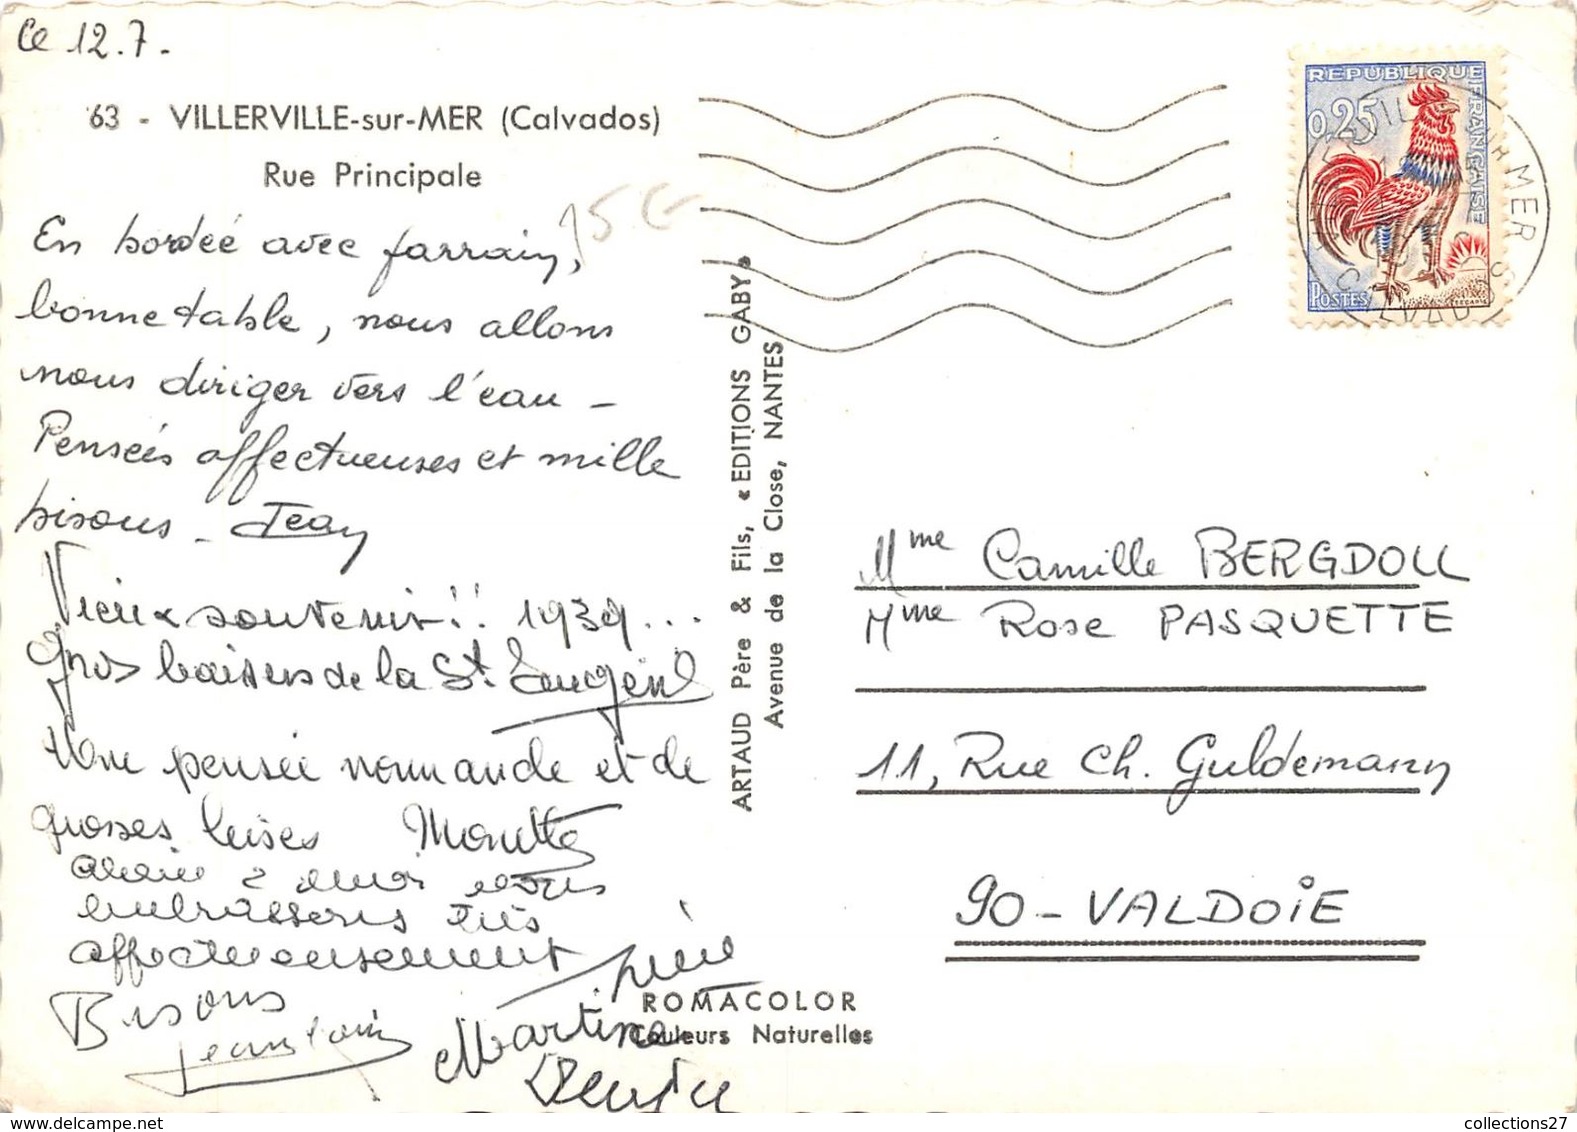 Ce 12.7.
63 - VILLERVILLE-sur-MER (Calvados)
Rue Principale
En bordée avec farrain,
bonne table, nous allons
nous diriger vers l'eau -
Pensées affectueuses et mille
bisous - Jean
Vieux souvenir!! 1939...
Gros baisers de la St. Eugène
Une pensée normande et de
grosses bises
2 amis vous
embrassons très
affectueusement
Bisous
Martine
ARTAUD Père & Fils, « EDITIONS GABY »
Avenue de la Close, NANTES
ROMACOLOR
Couleurs Naturelles
REPUBLIQUE FRANÇAISE
0,25
POSTES
MER
CALVADOS
Mme Camille BERGDOLL
Mme Rose PASQUETTE
11, Rue Ch. Guldemann
90 - VALDOIE
collections27